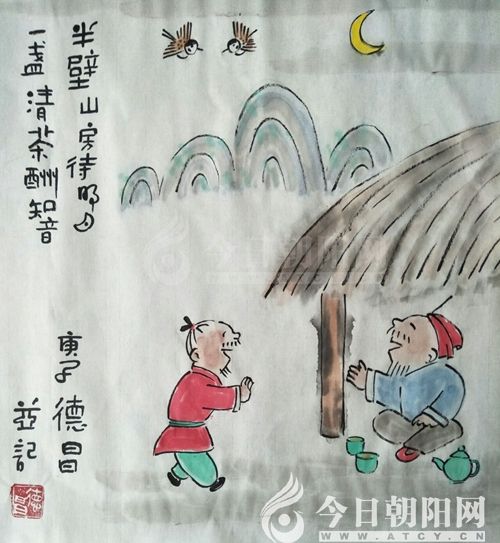 半壁山房待明月
一盏清茶酬知音
庚子 德昌
並記
德昌
今日朝阳网
今日朝阳网
WWW.ATCY.CN